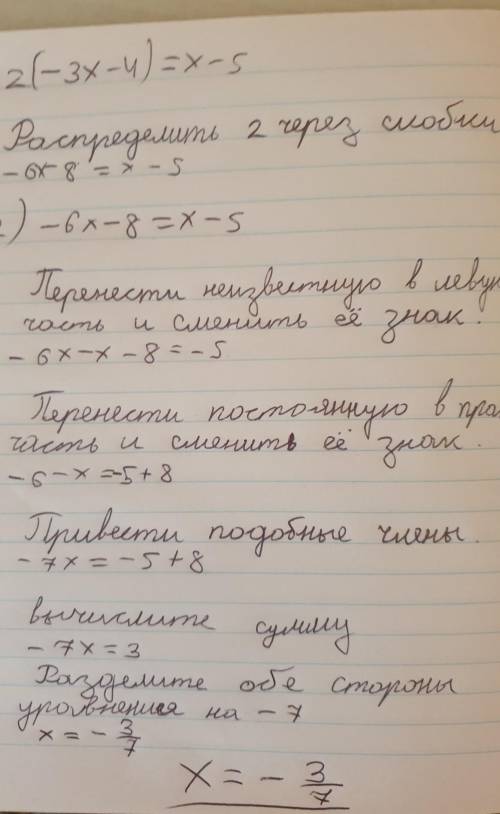 2(-3x-4)=x-5
Распределить 2 через скобки
-6x-8=x-5
) -6x-8=x-5
Перенести неизвестную в левую
часть и сменить её знак.
-6x-x-8=-5
Перенести постоянную в пра
часть и сменить её знак.
-6-x=-5+8
Привести подобные члены.
-7x=-5+8
вычислите сумму
-7x=3
Разделите обе стороны
уравнения на -7
x=-3/7
x=-3/7